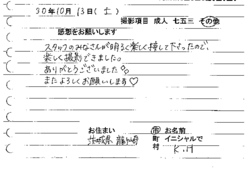 30年10月13日(土)
撮影項目 成人 七五三 その他
感想をお願いします
スタッフのみなさんが明るく楽しく接して下さったので、
楽しく撮影できました。
ありがとうございました。
またよろしくお願いします♡
お住まい お名前
茨城県 町村 イニシャルで
K.H